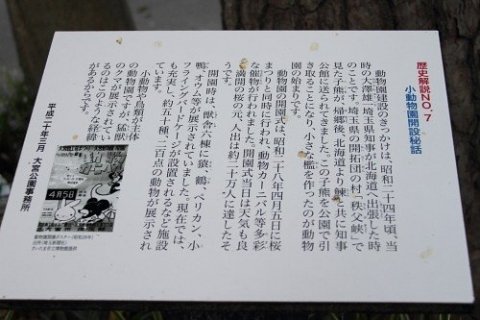 歴史解説NO.7
小動物園開設秘話
動物園建設のきっかけは、昭和二十四年頃、当
時の大澤雄一埼玉県知事が北海道へ出張した時
のことです。埼玉県の開拓団の村「秩父峡」で
見た子熊が、帰郷後、北海道より鰊と共に知事
公館に送られてきました。この子熊を公園で引
き取ることになり、小さな檻を作ったのが動物
園の始まりです。
動物園の開園式は、昭和二十八年四月五日に桜
まつりと同時に行われ、動物カーニバル等多彩
な催物が行われました。開園式当日は天気も良
く満開の桜の元、人出は約二十万人に達したそ
うです。
開園時は、獣舎六棟に猿、鶴、ペリカン、小
鴨、オウム等が展示されていました。現在では、
フライングバードケージが設置されるなど施設
も充実し、約五十種、二百点の動物が展示され
ています。
小動物や鳥類が主体
の動物園ですが、猛獣
のクマが展示されてい
るのはこのような経緯
があるからです。
平成二十年三月 大宮公園事務所
4月5日